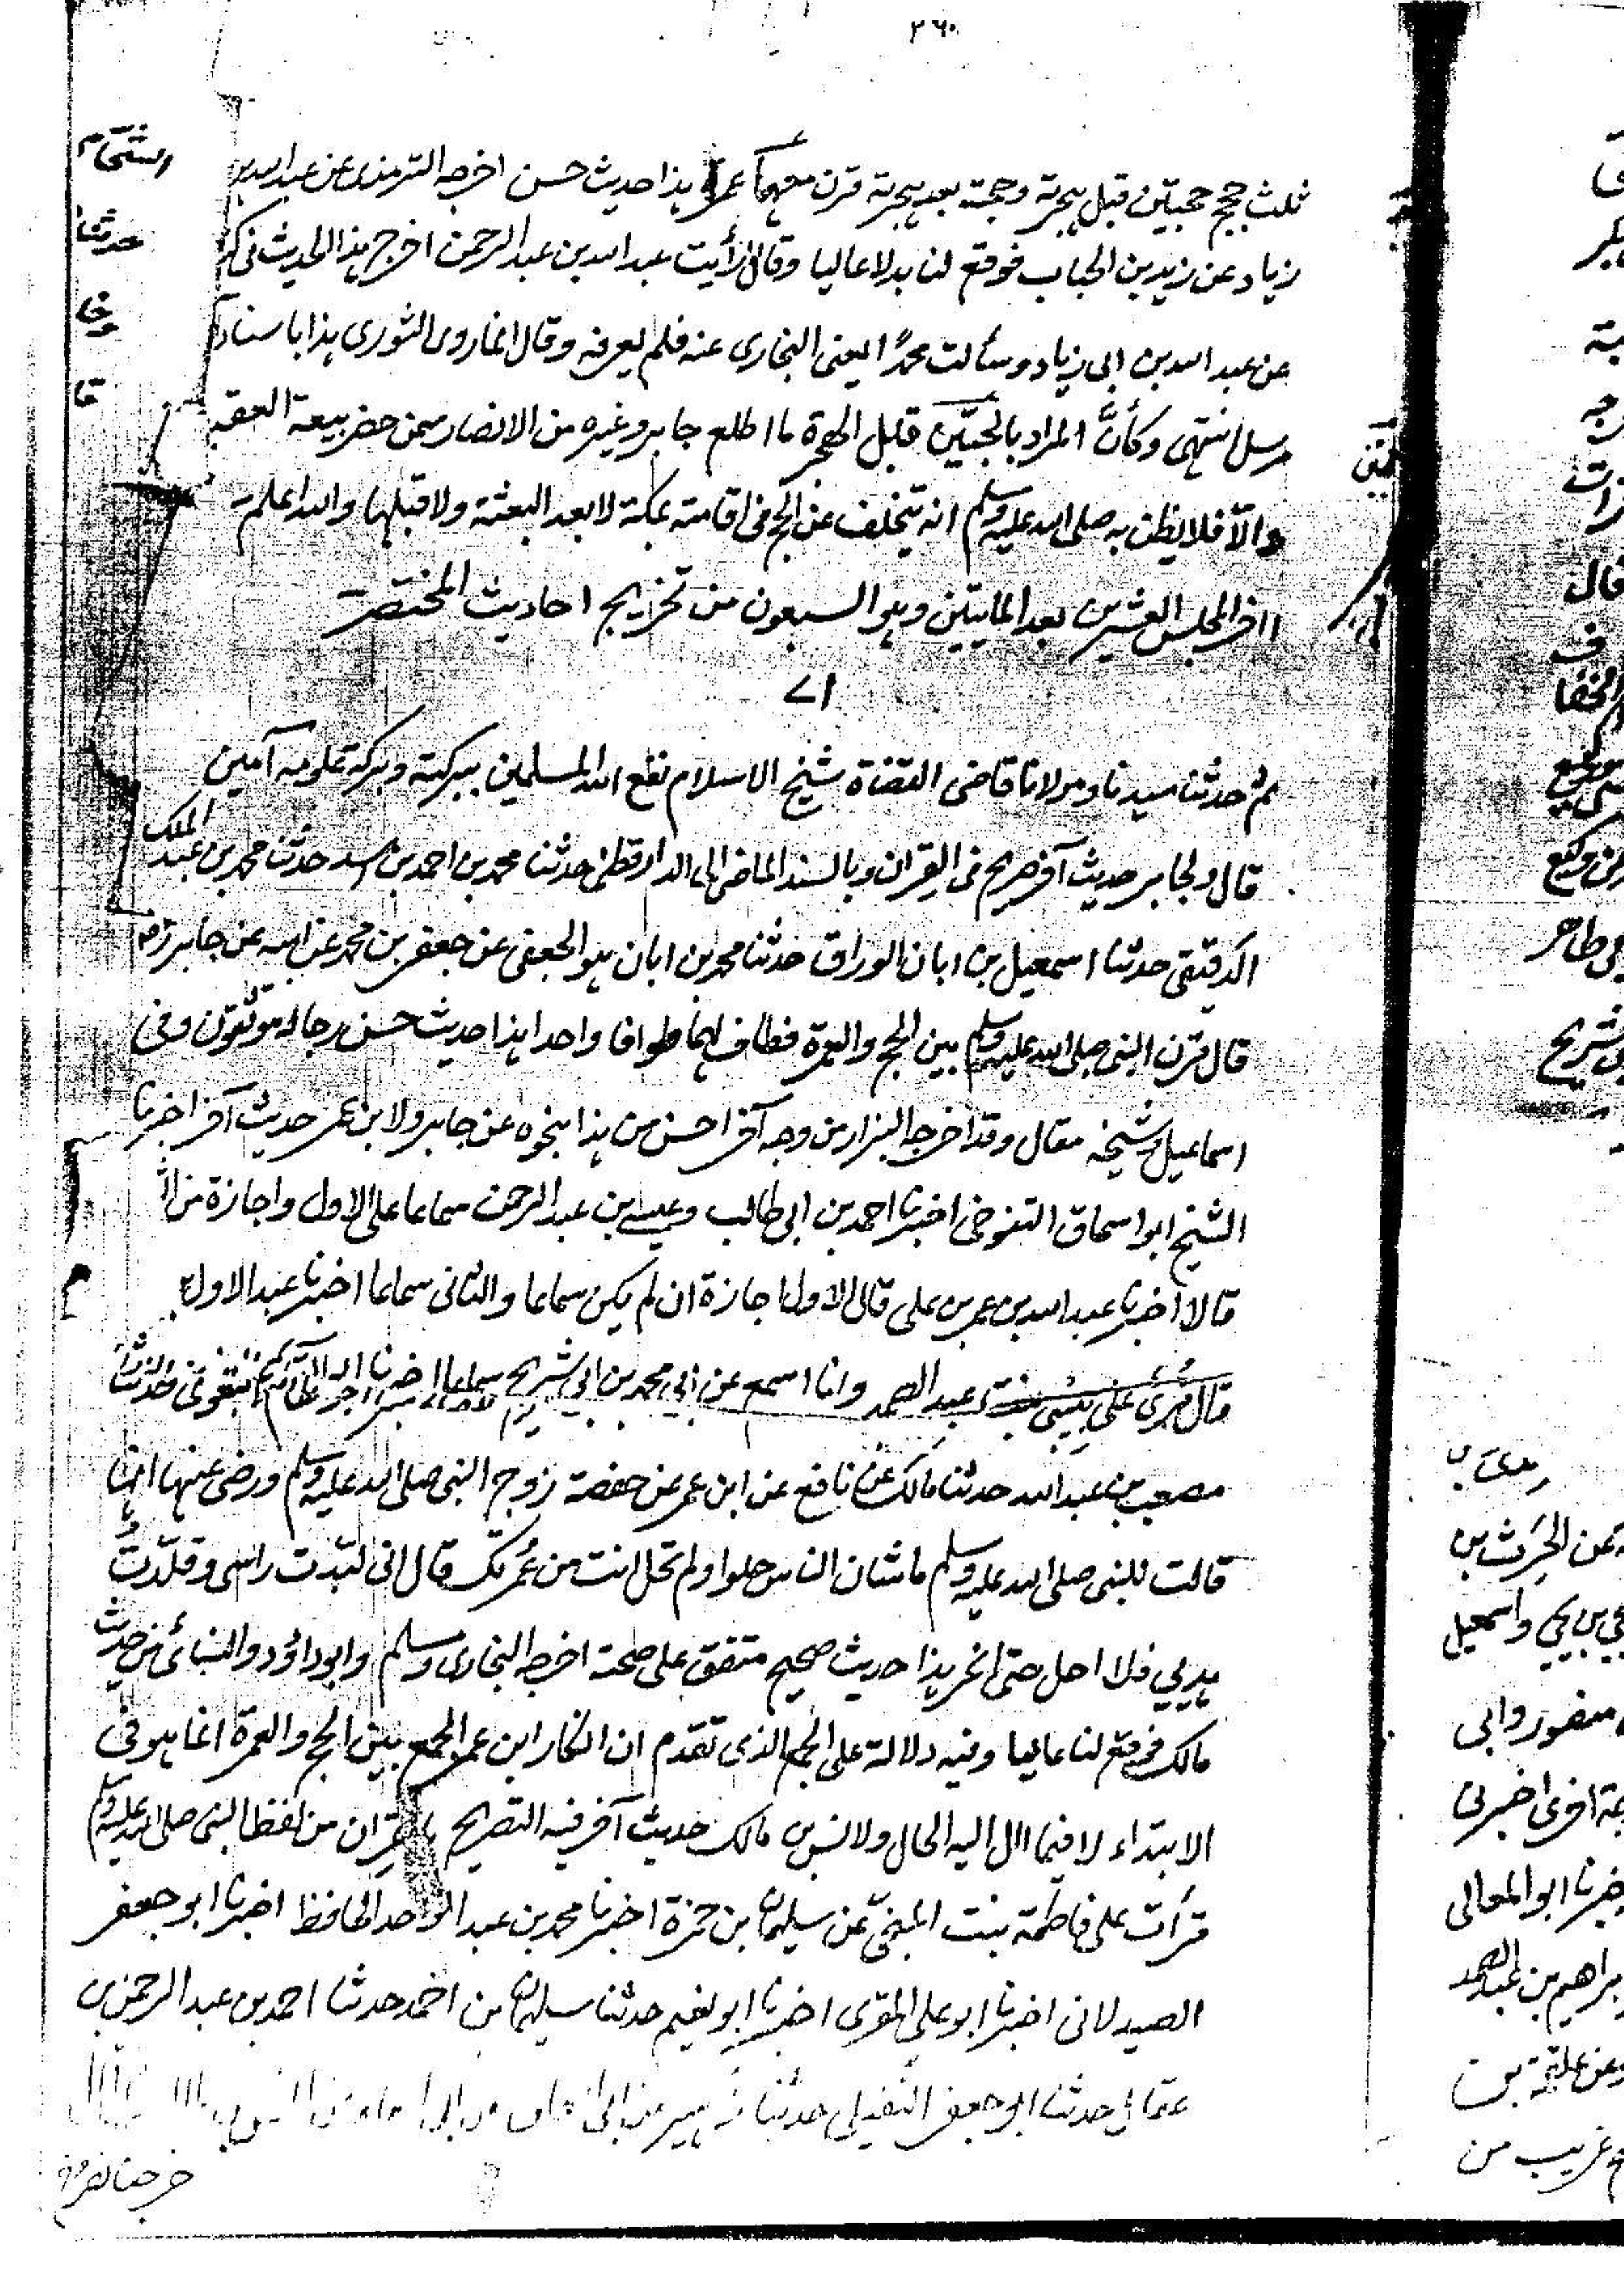 ٢٦٠
ثلث حجج حجتين قبل هجرته وحجة بعد هجرته قرن معهما عمرة هذا حديث حسن اخرجه الترمذى عن عبد الله بن
زياد عن زيد بن الحباب فوقع لنا بدلا عاليا وقال رأيت عبد الله بن عبد الرحمن اخرج هذا الحديث فى
عن عبد الله بن ابى زياد وسألت محمدًا يعنى البخارى عنه فلم يعرفه وقال انما روى الثورى هذا باسناد
مرسل انتهى وكأنَّ المراد بالحجتين قبل الهجرة ما اطلع جابر وغيره من الانصار ممن حضر بيعة العقبة
والّا فلا يظن به صلى الله عليه وسلم انه يتخلف عن الحج فى اقامته بمكة لا بعد البعثة ولا قبلها والله اعلم
اخر المجلس العشرين بعد المايتين وهو السبعون من تخريج احاديث المختصر
٧١
ثم حدثنا سيدنا ومولانا قاضى القضاة شيخ الاسلام نفع الله المسلمين ببركته وبركة علومه آمين
قال ولجابر حديث آخر صريح فى القران وبالسند الماضى الى الدارقطنى حدثنا محمد بن احمد بن حدثنا محمد بن عبد الملك
الدقيقى حدثنا اسمعيل بن ابان الوراق حدثنا محمد بن ابان هو الجعفى عن جعفر بن محمد عن ابيه عن جابر رضه
قال قرن النبى صلى الله عليه وسلم بين الحج والعمرة فطاف لهما طوافا واحدا هذا حديث حسن رجاله موثقون وفى
اسماعيل وشيخه مقال وقد اخرجه البزار من وجه آخر احسن من هذا بنحوه عن جابر ولابن عمر حديث آخر اخبرنا
الشيخ ابو اسحاق التنوخى اخبرنا احمد بن ابى طالب وعيسى بن عبد الرحمن سماعا على الاول واجازة من
قالا اخبرنا عبد الله بن عمر بن على قال الاول اجازة ان لم يكن سماعا والثانى سماعا اخبرنا عبد الاول
قال قرئ على بيبى بنت عبد الصمد وانا اسمع عن ابى محمد بن ابى شريح سماعا اخبرنا ابو القاسم البغوى حدثنا
مصعب بن عبد الله حدثنا مالك عن نافع عن ابن عمر عن حفصة زوج النبى صلى الله عليه وسلم ورضى عنها انها
قالت للنبى صلى الله عليه وسلم ما شان الناس حلوا ولم تحل انت من عُمرتك قال انى لبّدت راسى وقلّدتُ
هديي فلا احل حتى انحر هذا حديث صحيح متفق على صحته اخرجه البخارى ومسلم وابو داؤد والنسائى من حديث
مالك فوقع لنا عاليا وفيه دلالة على الجمع الذى تقدم ان انكار ابن عمر الجمع بين الحج والعمرة انما هو فى
الابتداء لا فيما اال اليه الحال ولانس بن مالك حديث آخر فيه التصريح بالقران من لفظ النبى صلى الله عليه وسلم
قرأت على فاطمة بنت المنجّى عن سليمان بن حمزة اخبرنا محمد بن عبد الواحد الحافظ اخبرنا ابو جعفر
الصيدلانى اخبرنا ابو على المقرى اخبرنا ابو نعيم حدثنا سليمان بن احمد حدثنا احمد بن عبد الرحمن بن
عقال حدثنا ابو جعفر النفيلى حدثنا زهير عن ابى
خرجنا نصرخ
حدثنا
قال
وكيع
طاهر
شريح
عن الحرث بن
بن يحيى واسمعيل
منصور وابى
اخرى اخبرنى
اخبرنا ابو المعالى
ابراهيم بن عبد الصمد
وعن علقمة بن
غريب من